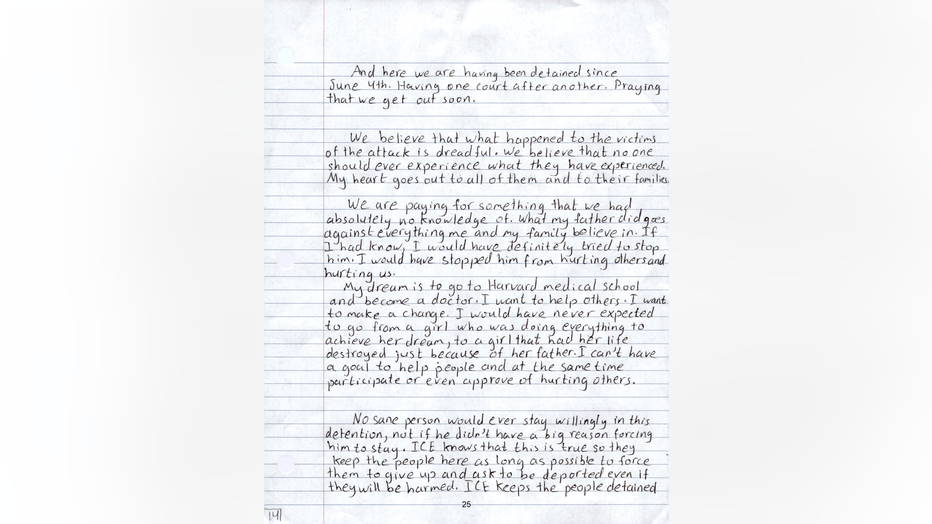 And here we are having been detained since
June 4th. Having one court after another. Praying
that we get out soon.
We believe that what happened to the victims
of the attack is dreadful. We believe that no one
should ever experience what they have experienced.
My heart goes out to all of them and to their families
We are paying for something that we had
absolutely no knowledge of. What my father did goes
against everything me and my family believe in. If
I had know, I would have definitely tried to stop
him. I would have stopped him from hurting others and
hurting us.
My dream is to go to Harvard medical school
and become a doctor. I want to help others. I want
to make a change. I would have never expected
to go from a girl who was doing everything to
achieve her dream, to a girl that had her life
destroyed just because of her father. I can't have
a goal to help people and at the same time
participate or even approve of hurting others.
No sane person would ever stay willingly in this
detention, not if he didn't have a big reason forcing
him to stay. ICE knows that this is true so they
keep the people here as long as possible to force
them to give up and ask to be deported even if
they will be harmed. ICE keeps the people detained
25
14